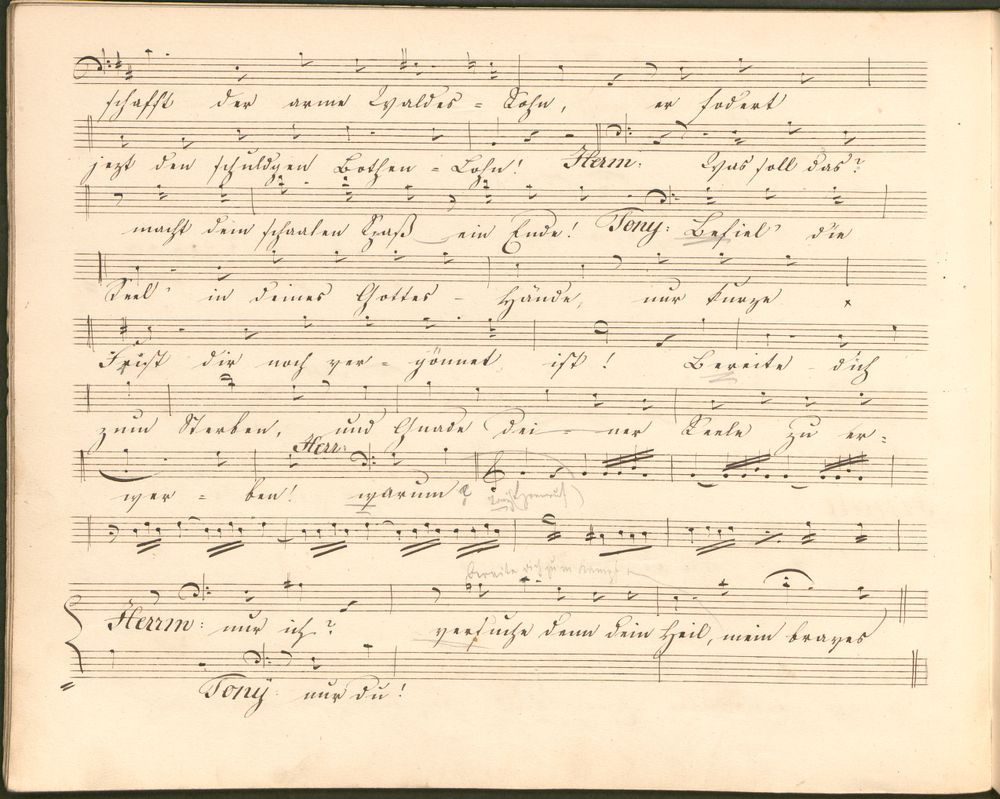 schafft der arme Waldes = Sohn, er fodert
jezt den schuldgen Bothen = Lohn! Herrm: Was soll das?
macht dein schaalen Spaß ein Ende! Tony: Befiel' die
Seel' in deines Gottes - Hände, nur kurze
Frist dir noch ver = gönnet ist! Bereite dich
zum Sterben, und Gnade dei = ner Seele zu er =
Herr:
wer = ben! warum ?
bereite dich zum Kampf
Herrm: nur ich? versuche denn dein Heil, mein braves
Tony: nur du!